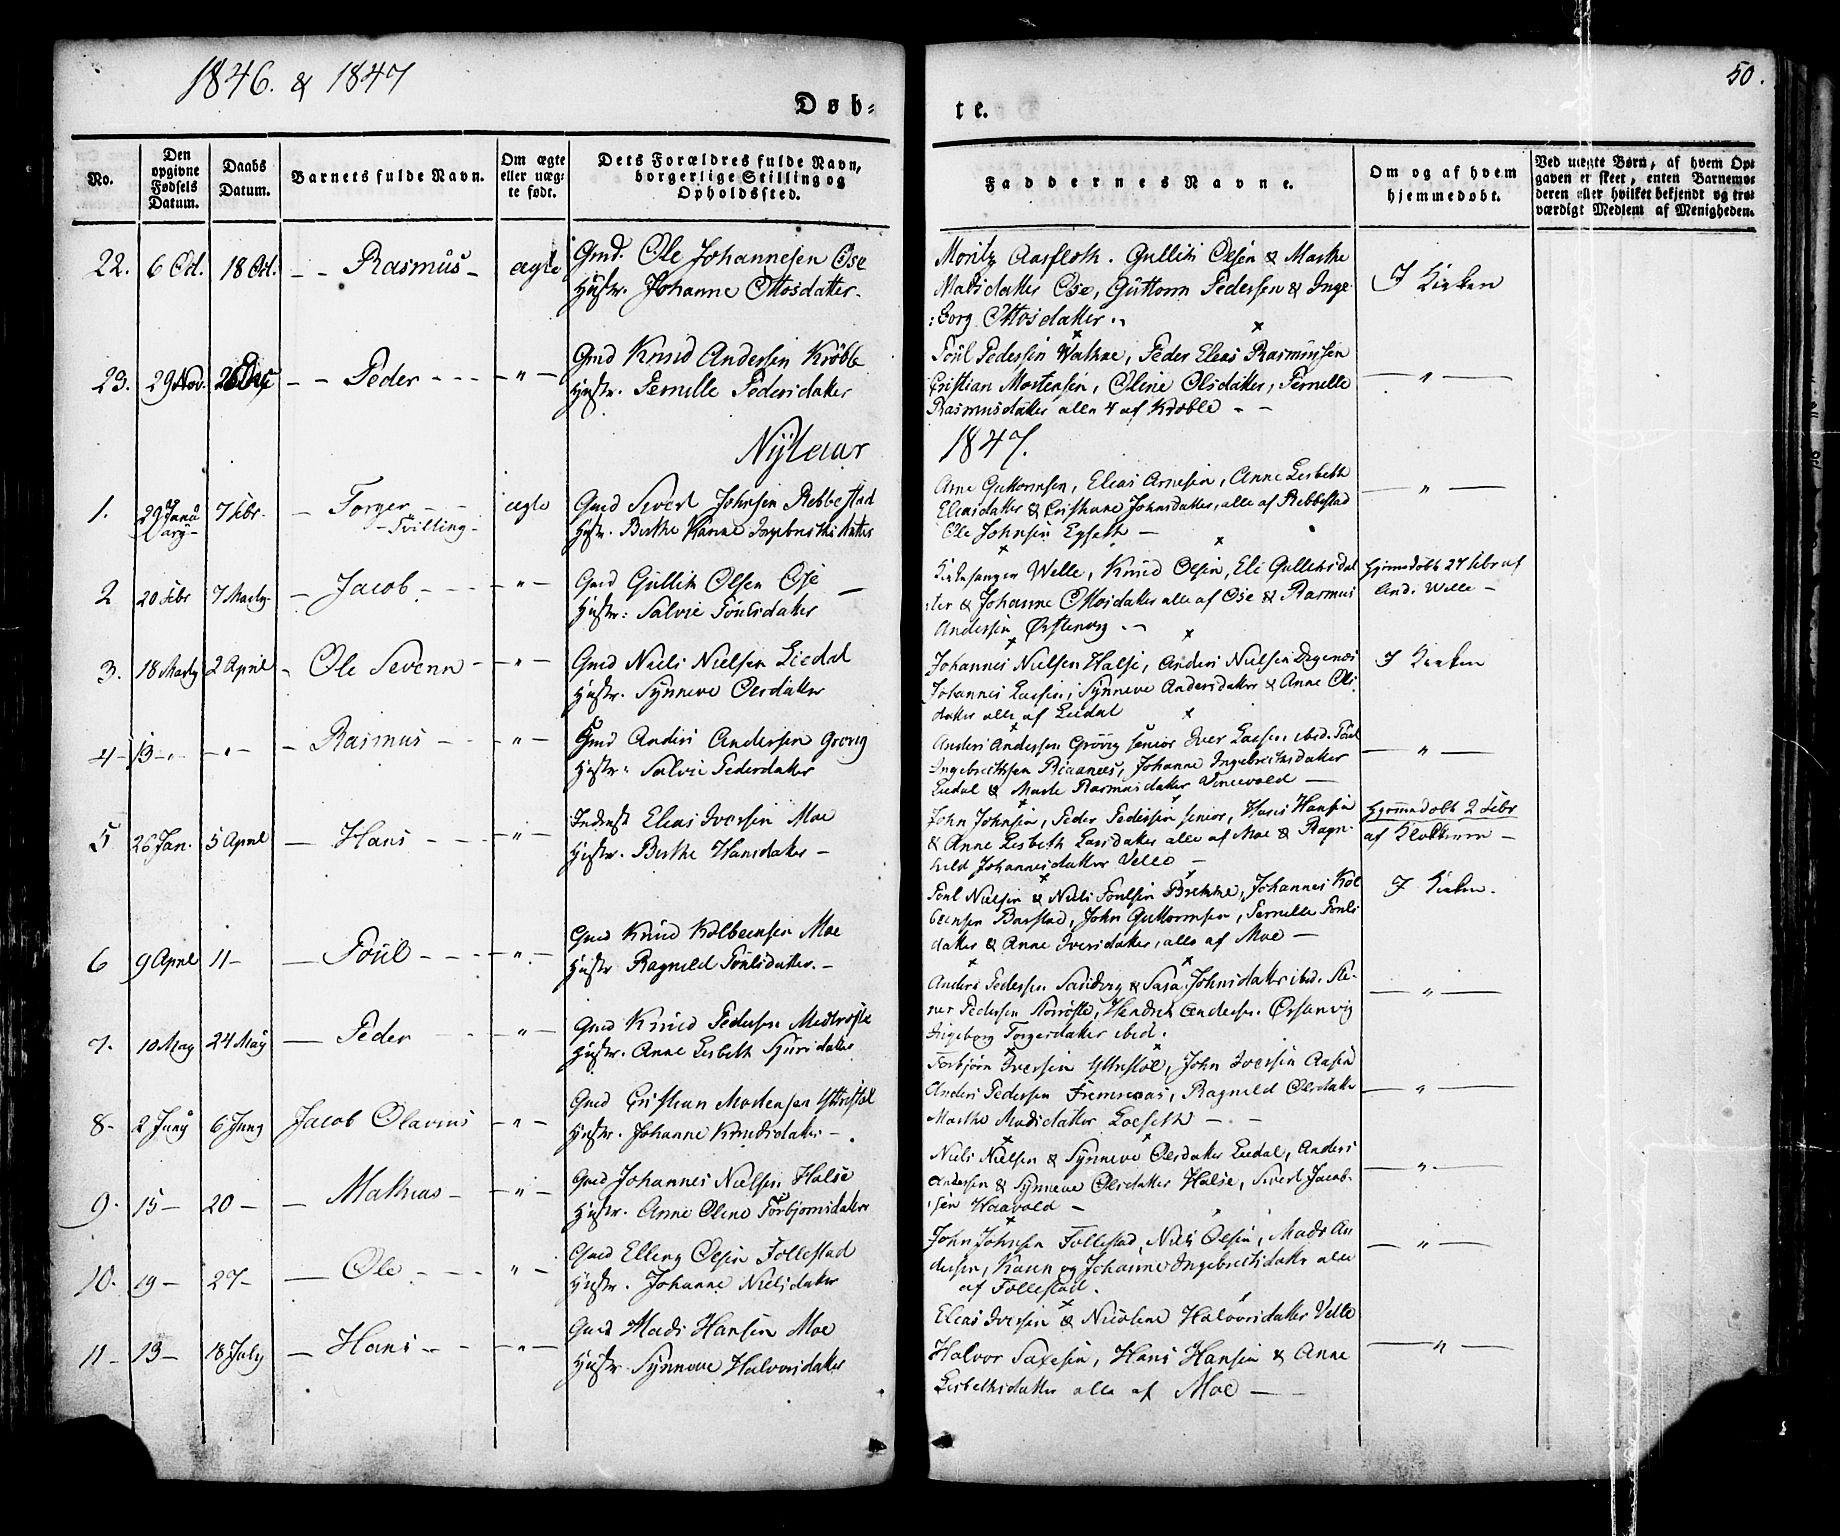 1846. & 1847
50.
Døb-
te.
No.
Den opgivne Fødsels Datum.
Daabs Datum.
Barnets fulde Navn.
Om ægte eller uægte født.
Dets Forældres fulde Navn, borgerlige Stilling og Opholdssted.
Faddernes Navne.
Om og af hvem hjemmedøbt.
Ved uægte Børn, af hvem Opgaven er skeet, enten Barnemoderen eller hvilket bekjendt og troværdigt Medlem af Menigheden.
22. 6 Oct. 18 Oct. – – Rasmus – ægte Gmd. Ole Johannesen Ose
Hustr. Johanne Ottosdatter.
Moritz Aarfloth. Gullik Olsen & Marthe
Madsdatter Ose, Guttorm Pedersen & Inge-
:borg Ottosdatter.
I Kirken
23. 29 Nov. – – Peder – – – – " – Gmd Knud Andersen Krøble
Hustr. Pernille Pedersdatter
Poul Pedersen Vatne, Peder Elias Rasmussen
Cristian Mortensen, Oline Olsdatter, Pernille
Rasmusdatter alle 4 af Krøble – –
– " –
Nytaar 1847.
1. 29 Janu
ary – 7 Febr. – Torger – –
– Tvilling – ægte Gmd Sivert Johnsen Rebbestad
Hustr. Berthe Karine Ingebrigtsdatter
Arne Guttormsen, Elias Arnesen, Anne Lisbeth
Eliasdatter & Cristiane Johnsdatter, alle af Rebbestad
Ole Johnsen Egseth –
– " –
2 20 Febr 7 Marty – Jacob – – – – " – Gmd Gullik Olsen Ose –
Hustr: Salvie Poulsdatter
Kirkesanger Welle, Knud Olsen, Eli Gulliksdat
:ter & Johanne Ottosdatter alle af Ose & Rasmus
Andersen Ørstenvig. –
Hjemdøbt 27 Febr af
And. Welle –
3. 18 Marty 2 April – Ole Severin – – " – Gmd Niels Nielsen Liedal
Hustr. Synneve Olsdatter
Johannes Nielsen Halse, Anders Nielsen Digenes
Johannes Larsen, Synneve Andersdatter & Anne Ols
datter alle af Liedal
I Kirken
4 – 13 – " – " – – Rasmus – – – " – Gmd Anders Andersen Grøvig
Hustr: Salvie Pedersdatter
Anders Andersen Grøvig senior Iver Larsen ibid. Poul
Ingebrigtsen Riaanees, Johanne Ingebrigtsdatter
Liedal & Marte Rasmusdatter Vinevold –
– " –
5 26 Jan. 5 April – Hans – – – – " – Inderst Elias Iversen Moe
Hustr. Berthe Hansdatter –
John Johnsen, Peder Pedersen senior, Hans Hansen
& Anne Lisbeth Larsdatter alle af Moe & Ragn-
hild Johannesdatter Velle –
Hjemmedøbt 2 Febr
af Klokkeren –
6 9 April 11 – – Poul – – – – " – Gmd Knud Kolbeensen Moe
Hustr Ragnild Poulsdatter. –
Poul Nielsen & Niels Poulsen Brekke, Johannes Kol
beensen Barstad, John Guttormsen, Pernille Pouls
datter & Anne Iversdatter, alle af Moe –
I Kirken.
7. 10 May 24 May – Peder – – " – Gmd Knud Pedersen Melkrøste
Hustr. Anne Lisbeth Sjursdatter
Anders Pedersen Sandvig & Sara Johnsdatter ibid. Ste-
ner Pedersen Storrøste, Hendrik Andersen Ørstenvig
Ingeborg Torgersdatter ibid.
– " –
8 – 2 Juny 6 Juny Jacob Olavius – " – Gmd Cristian Mortensen Ytrestøl
Hustr. Johanne Knudsdatter –
Torbjørn Iversen Ytrestøl, John Iversen Aasen
Anders Pedersen Fremsnæs, Ragnild Olsdatter
Marthe Madsdatter Loeseth – –
– " –
9. 15 – 20 – – Mathias – – " – Gmd Johannes Nielsen Halse
Hustr. Anne Oline Torbjørnsdatter
Niels Nielsen & Synneve Olsdatter Liedal, Anders
Andersen & Synneve Olsdatter Halse, Sivert Jacob-
:sen Haavold –
– " –
10. 19 – 27 – – Ole – – – " – Gmd Elling Olsen Follestad
Hustr. Johanne Nielsdatter
John Johnsen Follestad, Niels Olsen, Mads An
dersen, Karen og Johanne Ingebrigtsdatter alle
af Follestad.
– " –
11 – 13 – 18 July – Hans – – – " – Gmd Mads Hansen Moe
Hustr. Synneve Halvorsdatter
Elias Iversen & Nicoline Halvorsdatter Velle
Halvor Saxesen, Hans Hansen & Anne
Lisbethsdatter alle af Moe –
– " –